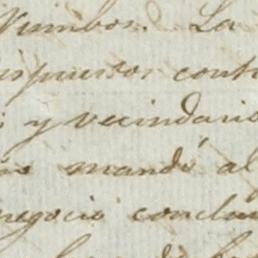 Nimbos. La
ispuesos cont
y vecindario
mandó al
negocio conclu